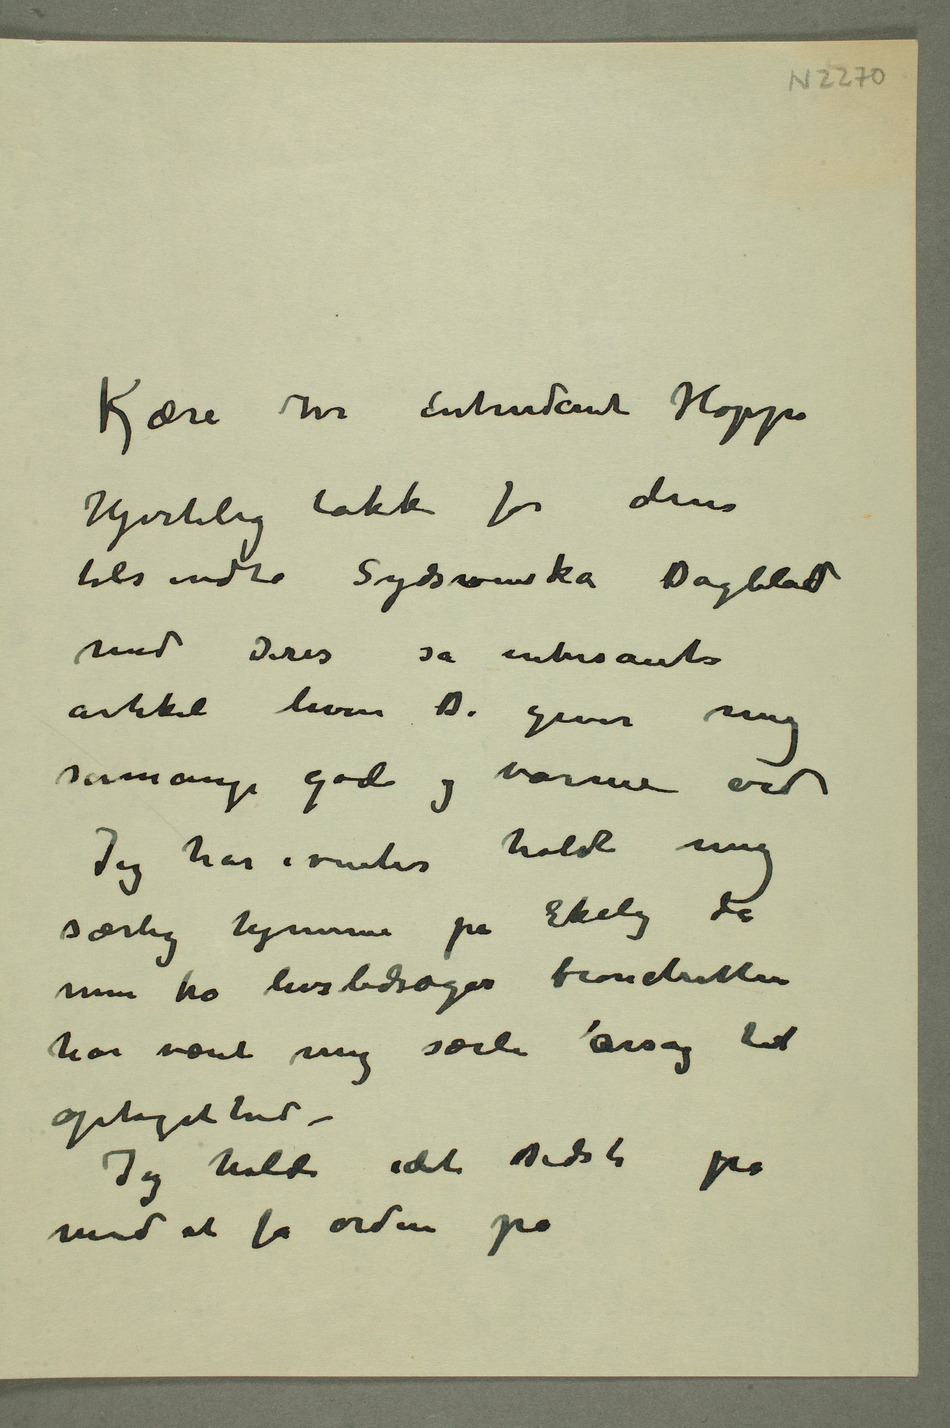 N 2270
Kjære Hr Intendant Hoppe
Hjertelig takk for den
tilsendte Sydsvenska Dagblad
med Deres så intresante
artikel hvori De giver mig
såmange gode og varme ord
Jeg har ivinter holdt mig
særlig hjemme på Ekely da
min fra livsledsager bronchitten
har været mig særli årsag til
optagethed –
Jeg holdt idet sidste på
med at få orden på